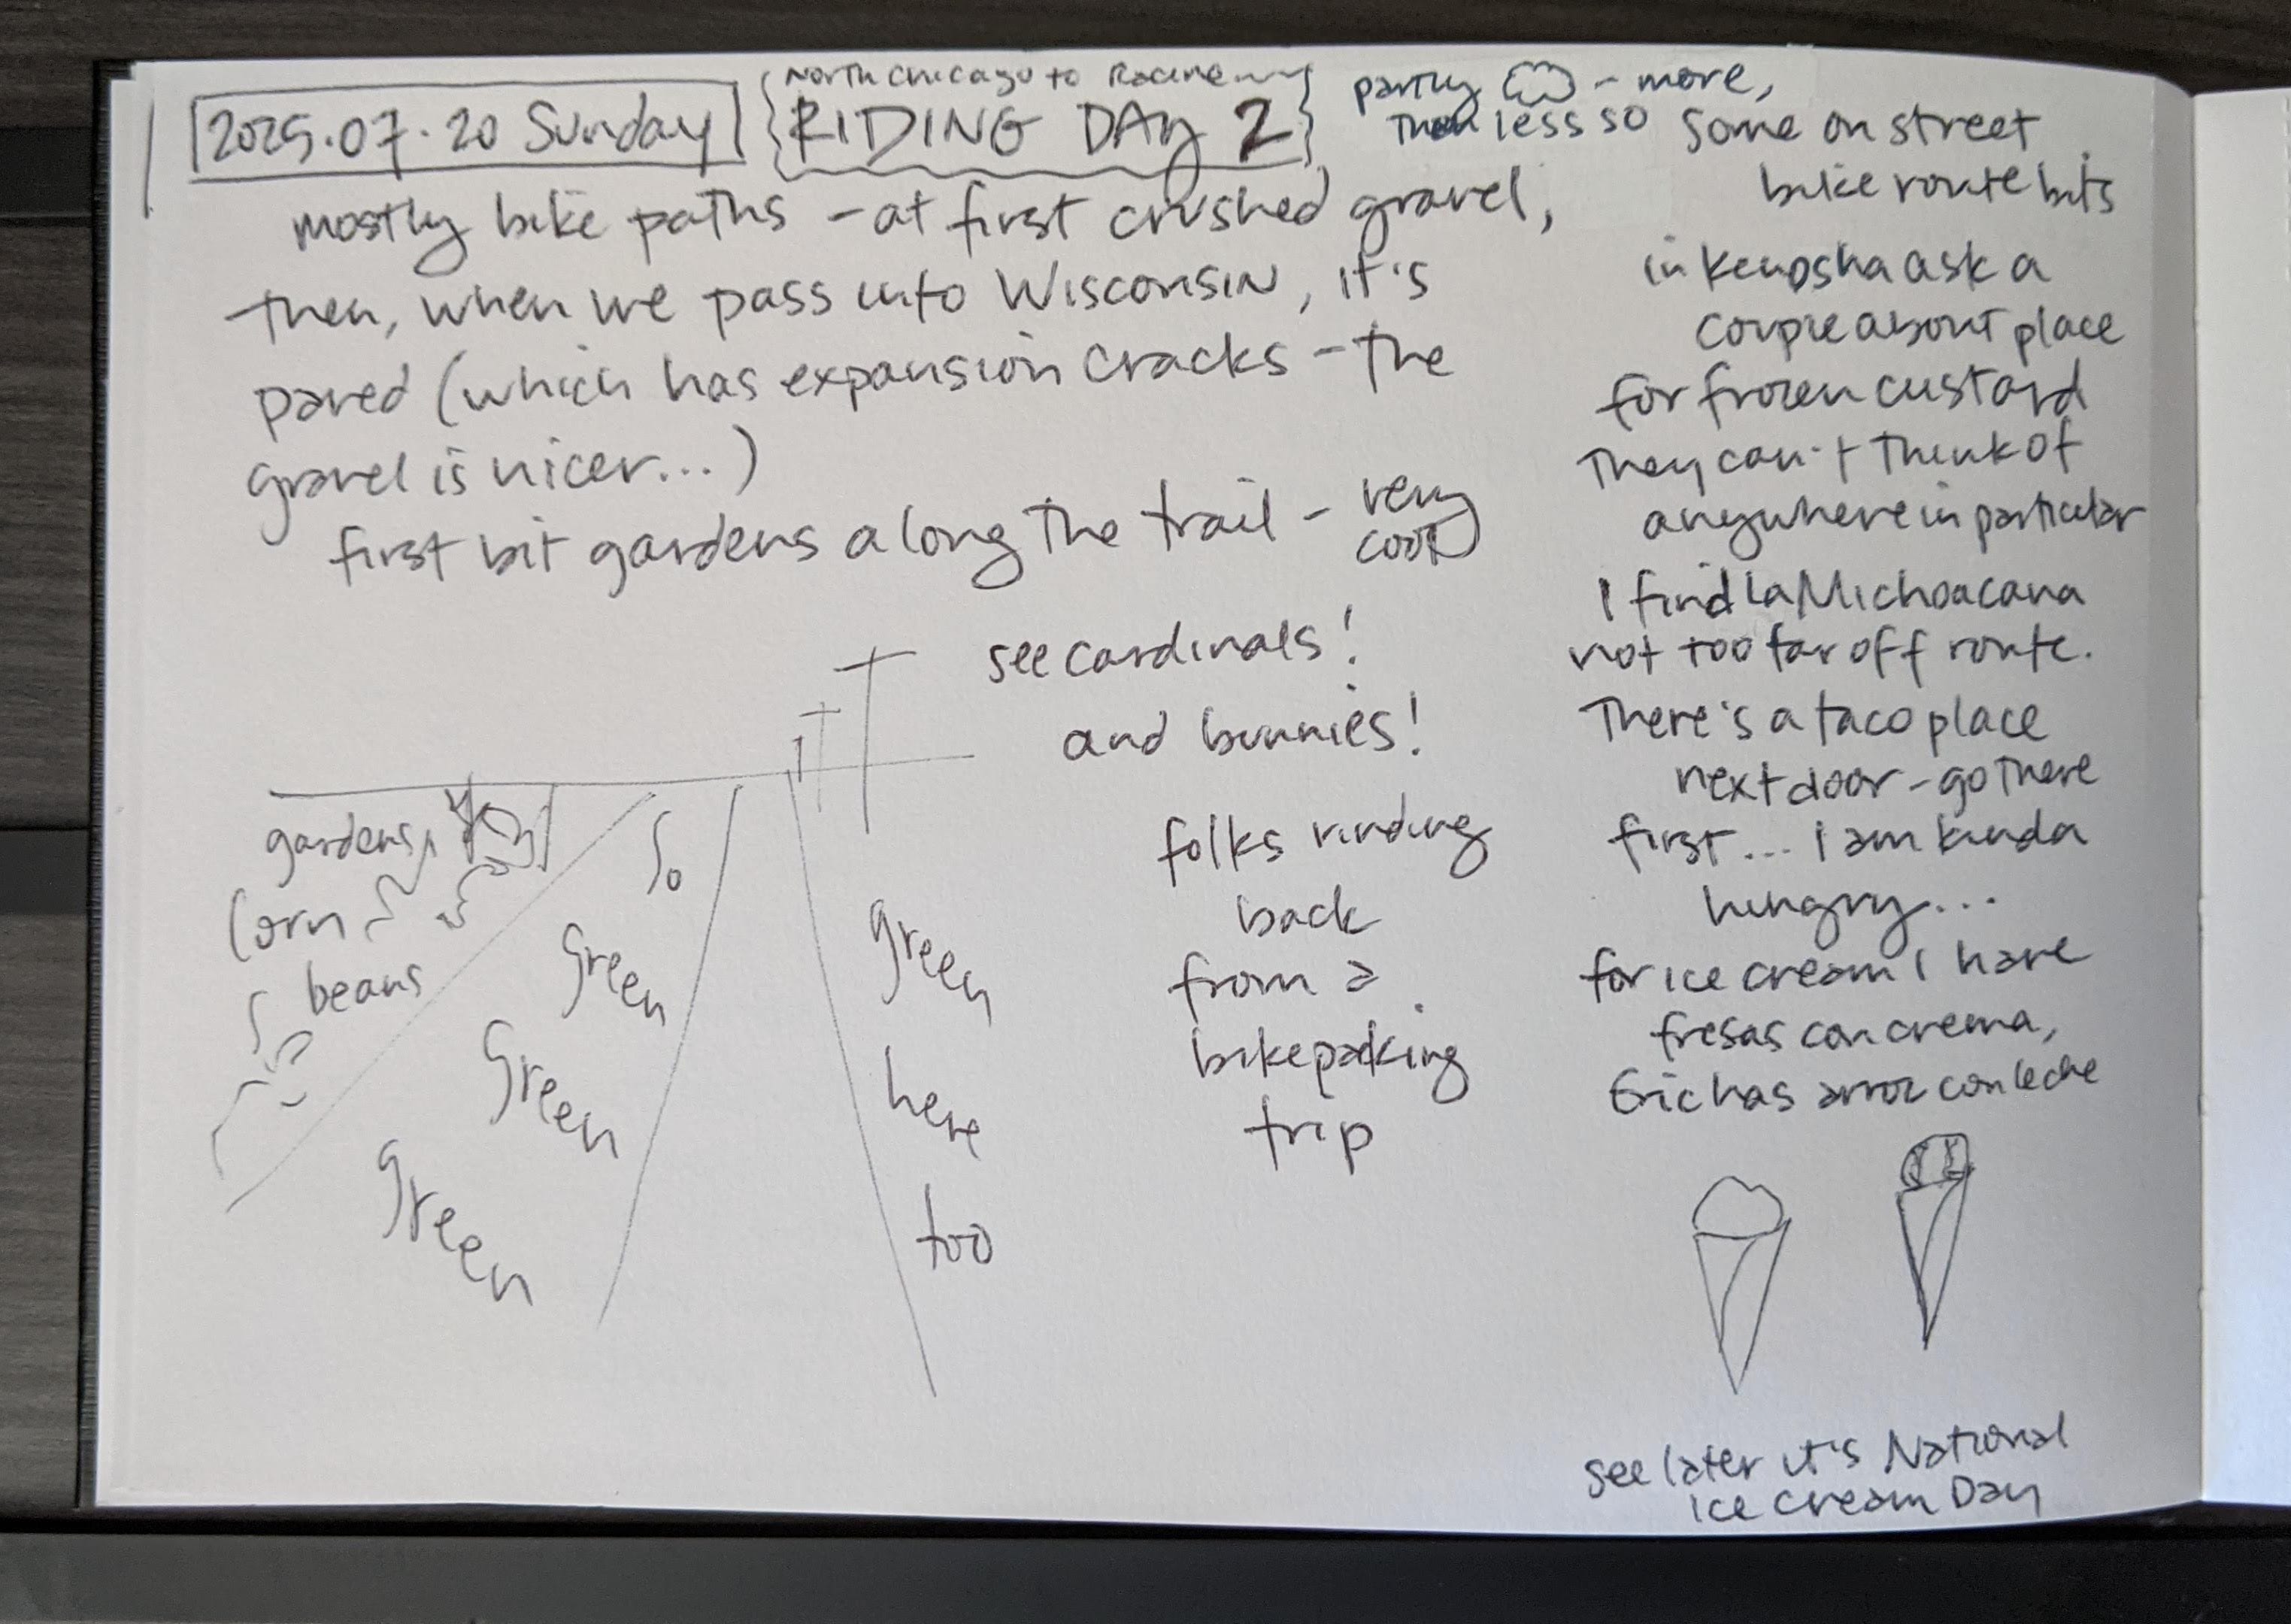 2025.07.20 Sunday
North Chicago to Racine
RIDING DAY 2
partly - more,
then less so
mostly bike paths - at first crushed gravel,
then, when we pass into Wisconsin, it's
paved (which has expansion cracks - the
gravel is nicer...)
first bit gardens along the trail - very
cool
see cardinals!
and bunnies!
gardens,
corn
beans
So
green
green
green
green
here
too
folks riding
back
from a
bikepacking
trip
Some on street
bike route bits
in Kenosha ask a
couple about place
for frozen custard
They can't think of
anywhere in particular
I find La Michoacana
not too far off route.
There's a taco place
next door - go there
first... I am kinda
hungry...
for ice cream I have
fresas con crema,
Eric has arroz con leche
see later it's National
Ice Cream Day